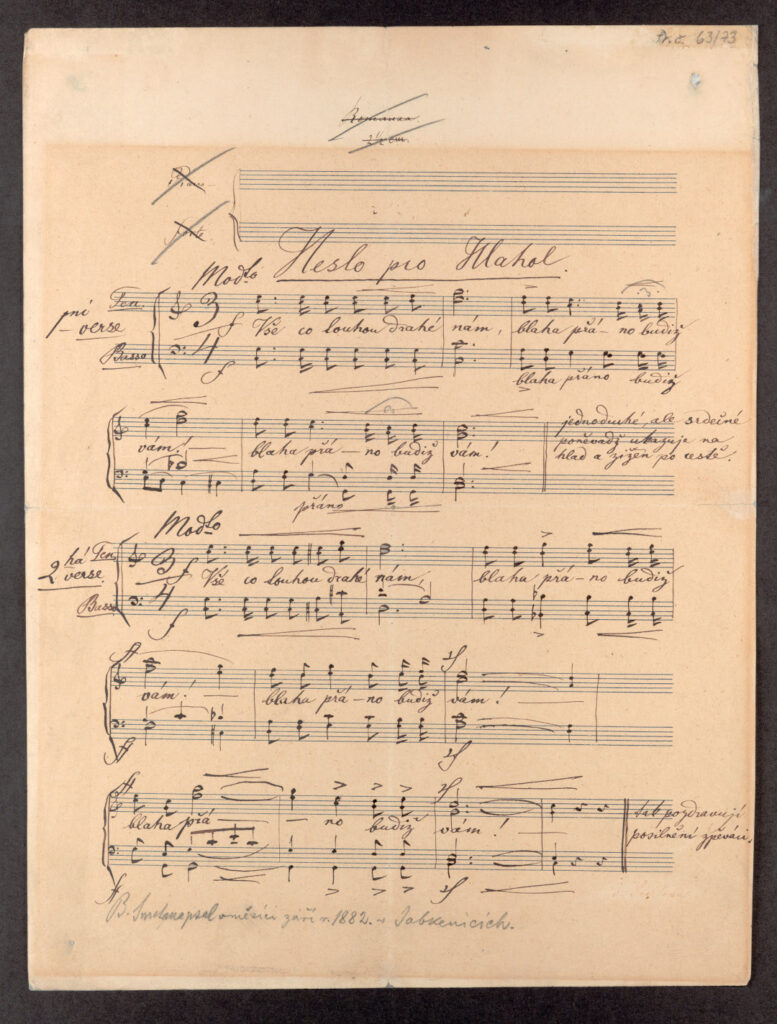 Tr. č. 63/73
Romanza
Piano
forte
Heslo pro Hlahol.
Modto
pní verse
Ten.
3 4
f
Vše co louhou drahé nám, blaha přá – no budiž
Basso
f
blaha přáno budiž
vám! blaha přá – no budiž vám!
přáno
jednoduché, ale srdečné
poněvadž ukazuje na
hlad a žižeň po cestě.
Modto
2há verse
Ten.
3 4
f
Vše co louhou drahé nám, blaha přá – no budiž
Basso
f
ff
sf
vám! blaha přá – no budiž vám!
ff
sf
ff
sf
blaha přá – no budiž vám!
ff
sf
tak pozdravují
posilnění zpěváci.
B. Smetana psal v měsíci září r. 1882. v Jabkenicích.